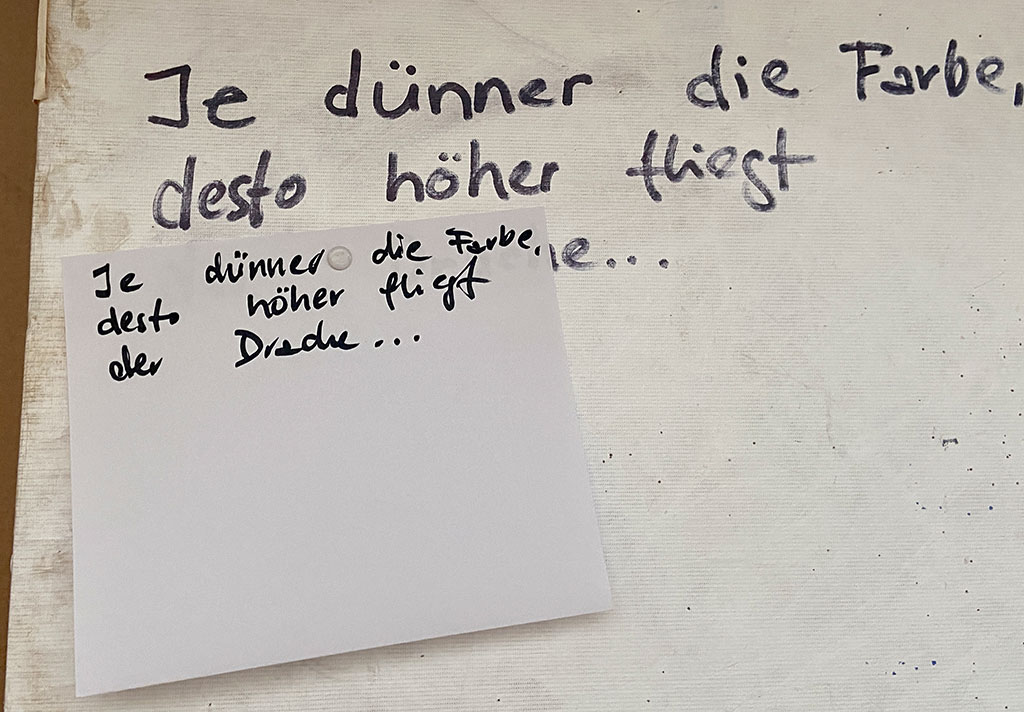 Je dünner die Farbe,
desto höher fliegt
he...
Je dünner die Farbe,
desto höher fliegt
der Drache...